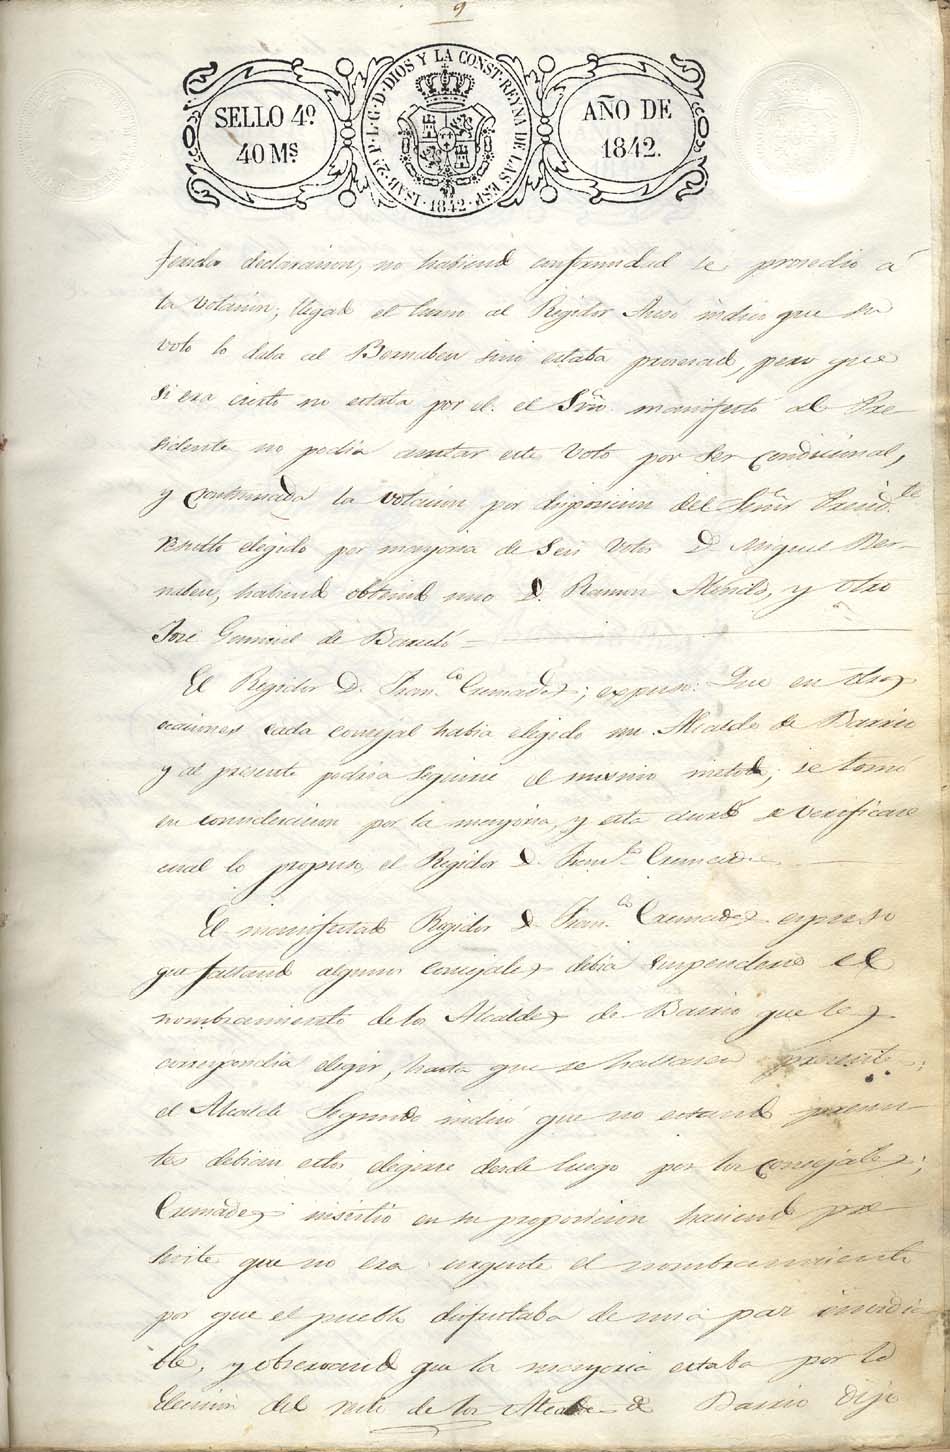 9
SELLO 4º
40 Mˢ
ISAB. 2ª P. L. G. D. DIOS Y LA CONST. REYNA DE LAS ESP. 1842
AÑO DE
1842.
ferida declaracion, no habiendo conformidad se prosedio á
la votacion; llegado el turno al Regidor indico que su
voto lo daba al Bernabeu sino estaba procesado, pero que
si era cierto no estaba por el. el Srio. manifestó al Pre-
sidente no podia anotar este voto por ser condicional,
y continuada la votacion por disposicion del Señor Presid.te
resulto elegido por mayoria de seis votos D. Miguel Ber-
nabeu, habiendo obtenido uno D. Ramon y otro
José de Barceló
El Regidor D. Fran.co Cremades; expuso: Que en otras
ocasiones cada consejal habia elejido un Alcalde de Barrio
y al presente podria seguirse el mismo metodo; se tomó
en consideracion por la mayoria, y esta acordó se verificase
cual lo propuso el Regidor D. Fran.co Cremades.
El manifestado Regidor D. Fran.co Cremades expuso
que faltando algunos consejales debia suspenderse el
nombramiento de los Alcaldes de Barrio que les
correspondia elegir, hasta que se hallasen presentes;
el Alcalde Segundo indicó que no estando presen-
tes debian estos elegirse desde luego por los consejales;
Cremades insistió en su proposicion haciendo pre-
sente que no era urgente el nombramiento
por que el pueblo disfrutaba de una paz
ble, y observando que la mayoria estaba por la
Eleccion del resto de los Alcaldes de Barrio dijo